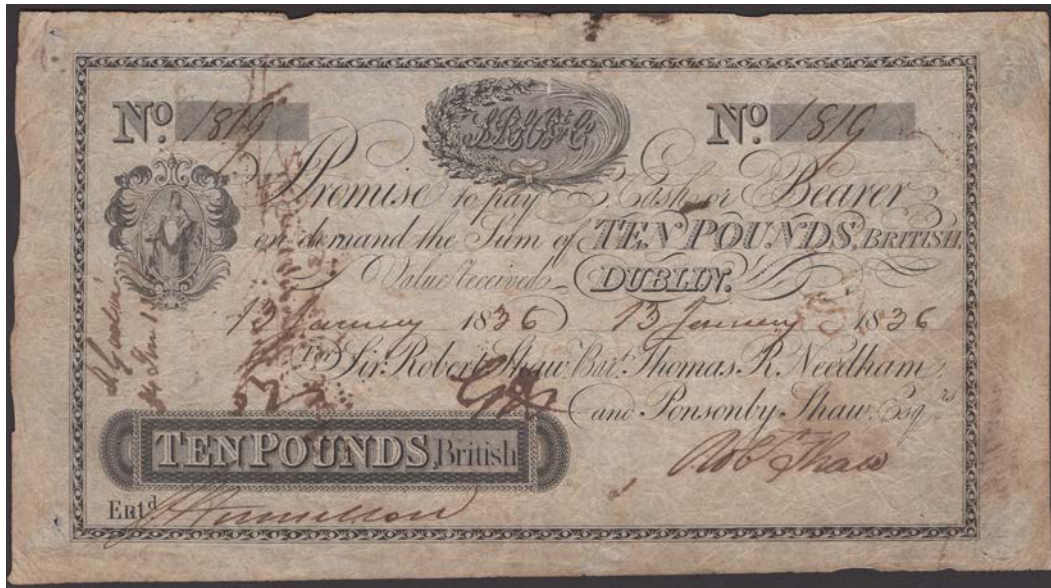 No. 1819 No. 1819
I Promise to pay Cash or Bearer
on demand the Sum of TEN POUNDS, BRITISH,
Value received DUBLIN.
13 January 1836 13 January 1836
For Sir Robert Shaw, Bart. Thomas R. Needham,
and Ponsonby Shaw, Esqrs.
TEN POUNDS, British
Robt Shaw
Entd